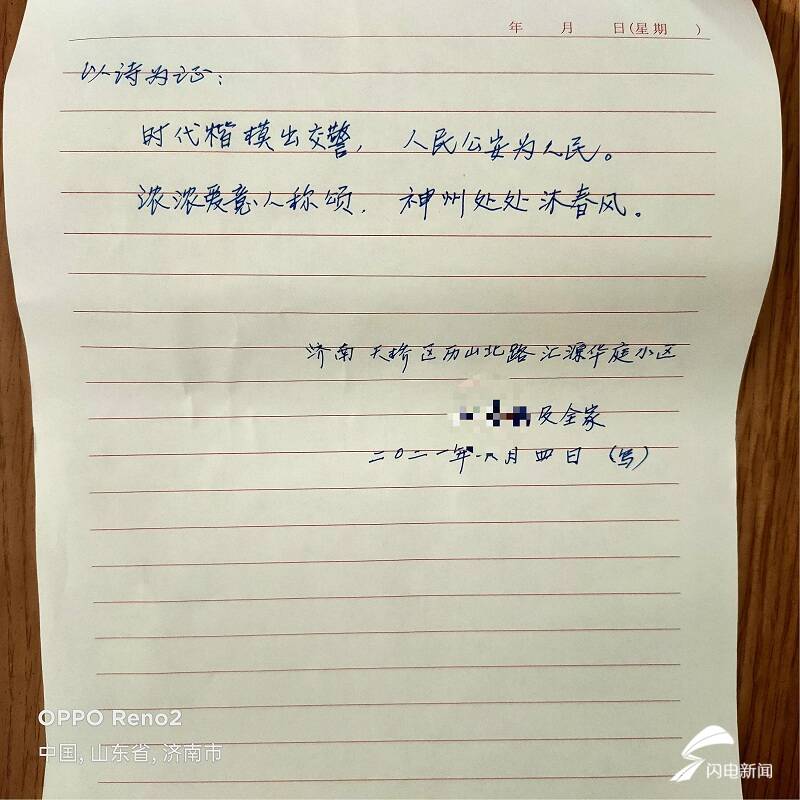 年 月 日(星期 )
以诗为证:
时代楷模出交警, 人民公安为人民。
浓浓爱意人称颂, 神州处处沐春风。
济南天桥区历山北路汇源华庭小区
及全家
二〇二一年六月四日 (写)
OPPO Reno2
中国, 山东省, 济南市
闪电新闻